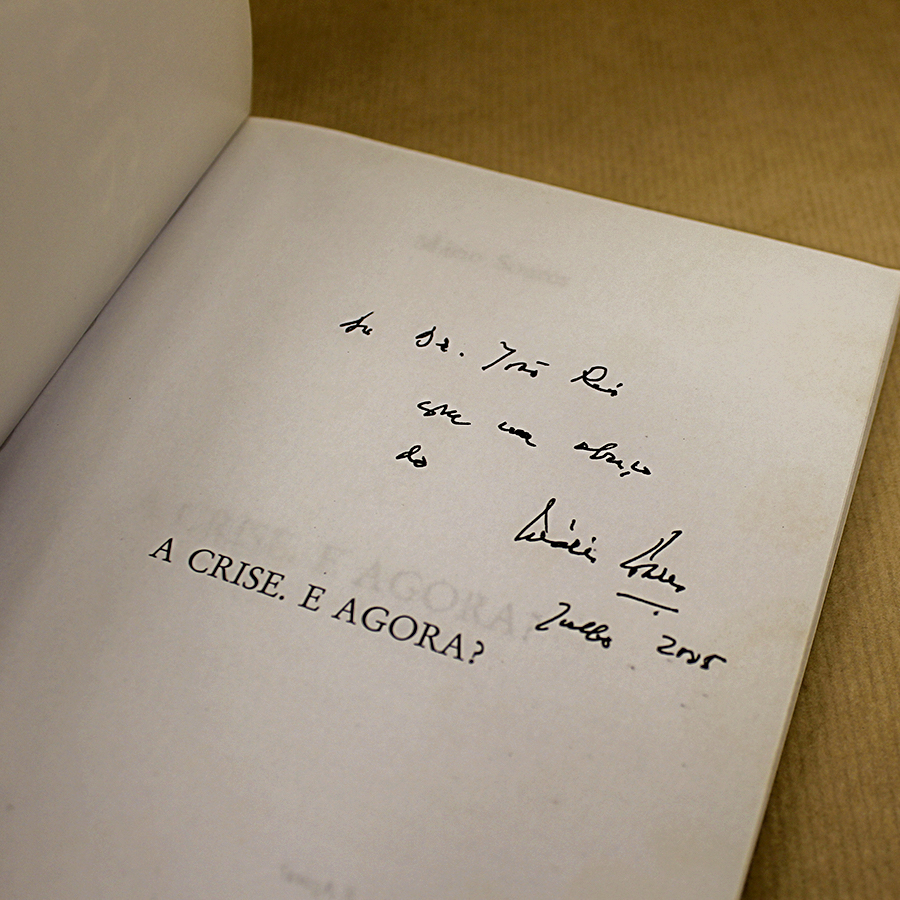 Mário Soares
Ao Dr. João Reis
com um abraço
do
Mário Soares
Julho 2005
A CRISE. E AGORA?